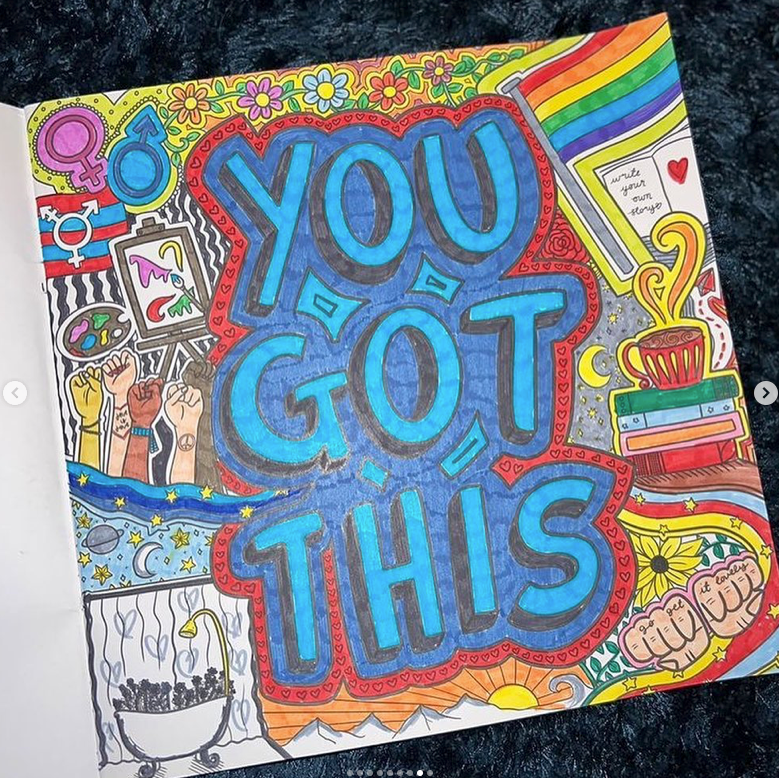 YOU
GOT
THIS
write
your
own
story
go get
it lovely